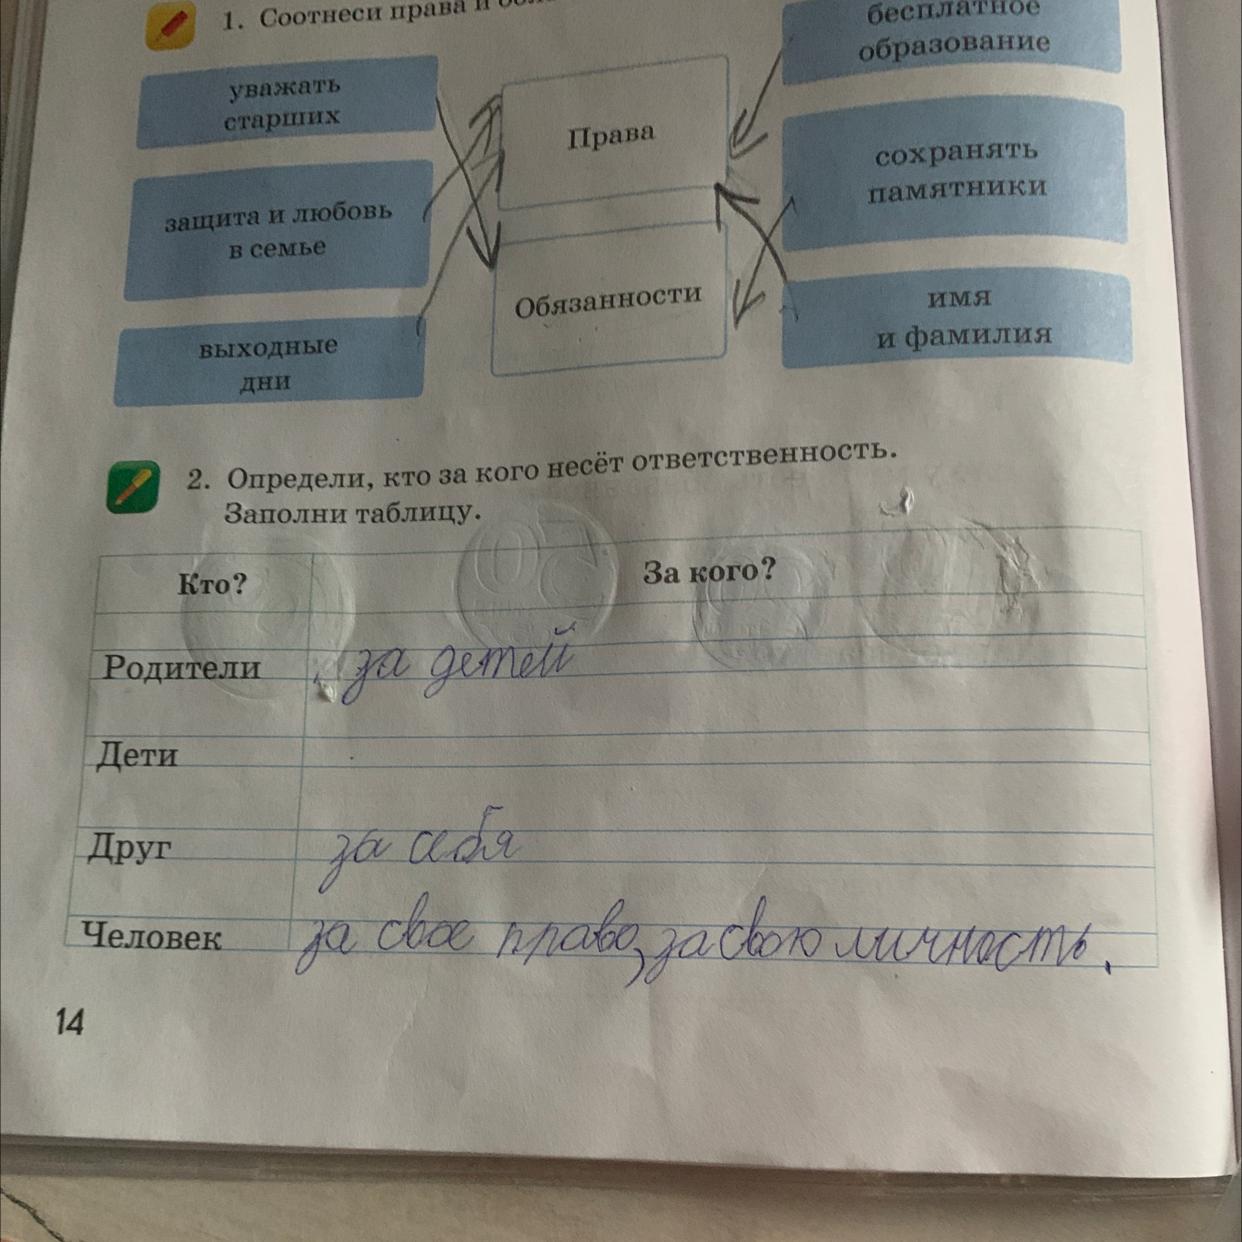 1. Соотнеси права и
бесплатное
образование
уважать
старших
Права
сохранять
памятники
защита и любовь
в семье
Обязанности
имя
и фамилия
выходные
дни
2. Определи, кто за кого несёт ответственность.
Заполни таблицу.
Кто? За кого?
Родители за детей
Дети
Друг за себя
Человек за свое право, за свою личность.
14